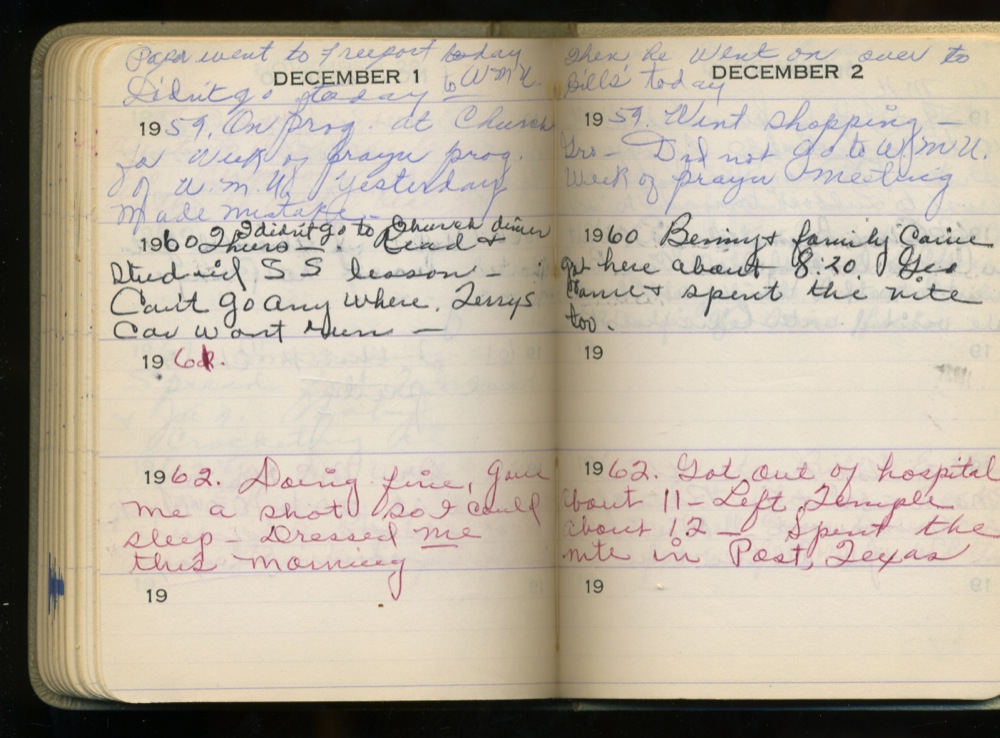 Papa went to Freeport today
DECEMBER 1
Didn't go today to W.M.U.
1959. On prog. at Church
for week of prayer prog.
of W.M.U. Yesterday
Made mistake -
I didn't go to Church dinner
1960 Thurs -. Read &
studied S S lesson -
Can't go any where. Terrys
Car wont run -
1961.
1962. Doing fine, gave
me a shot so I could
sleep - Dressed me
this morning
19
Then he went on over to
DECEMBER 2
Bills today
1959. Went shopping -
Gro - Did not go to W.M.U.
Week of prayer meeting
1960 Benny & family Came
got here about 8.20. Geo
Came & spent the nite
too.
19
1962. Got out of hospital
about 11 - Left Temple
about 12 - Spent the
nite in Post, Texas
19